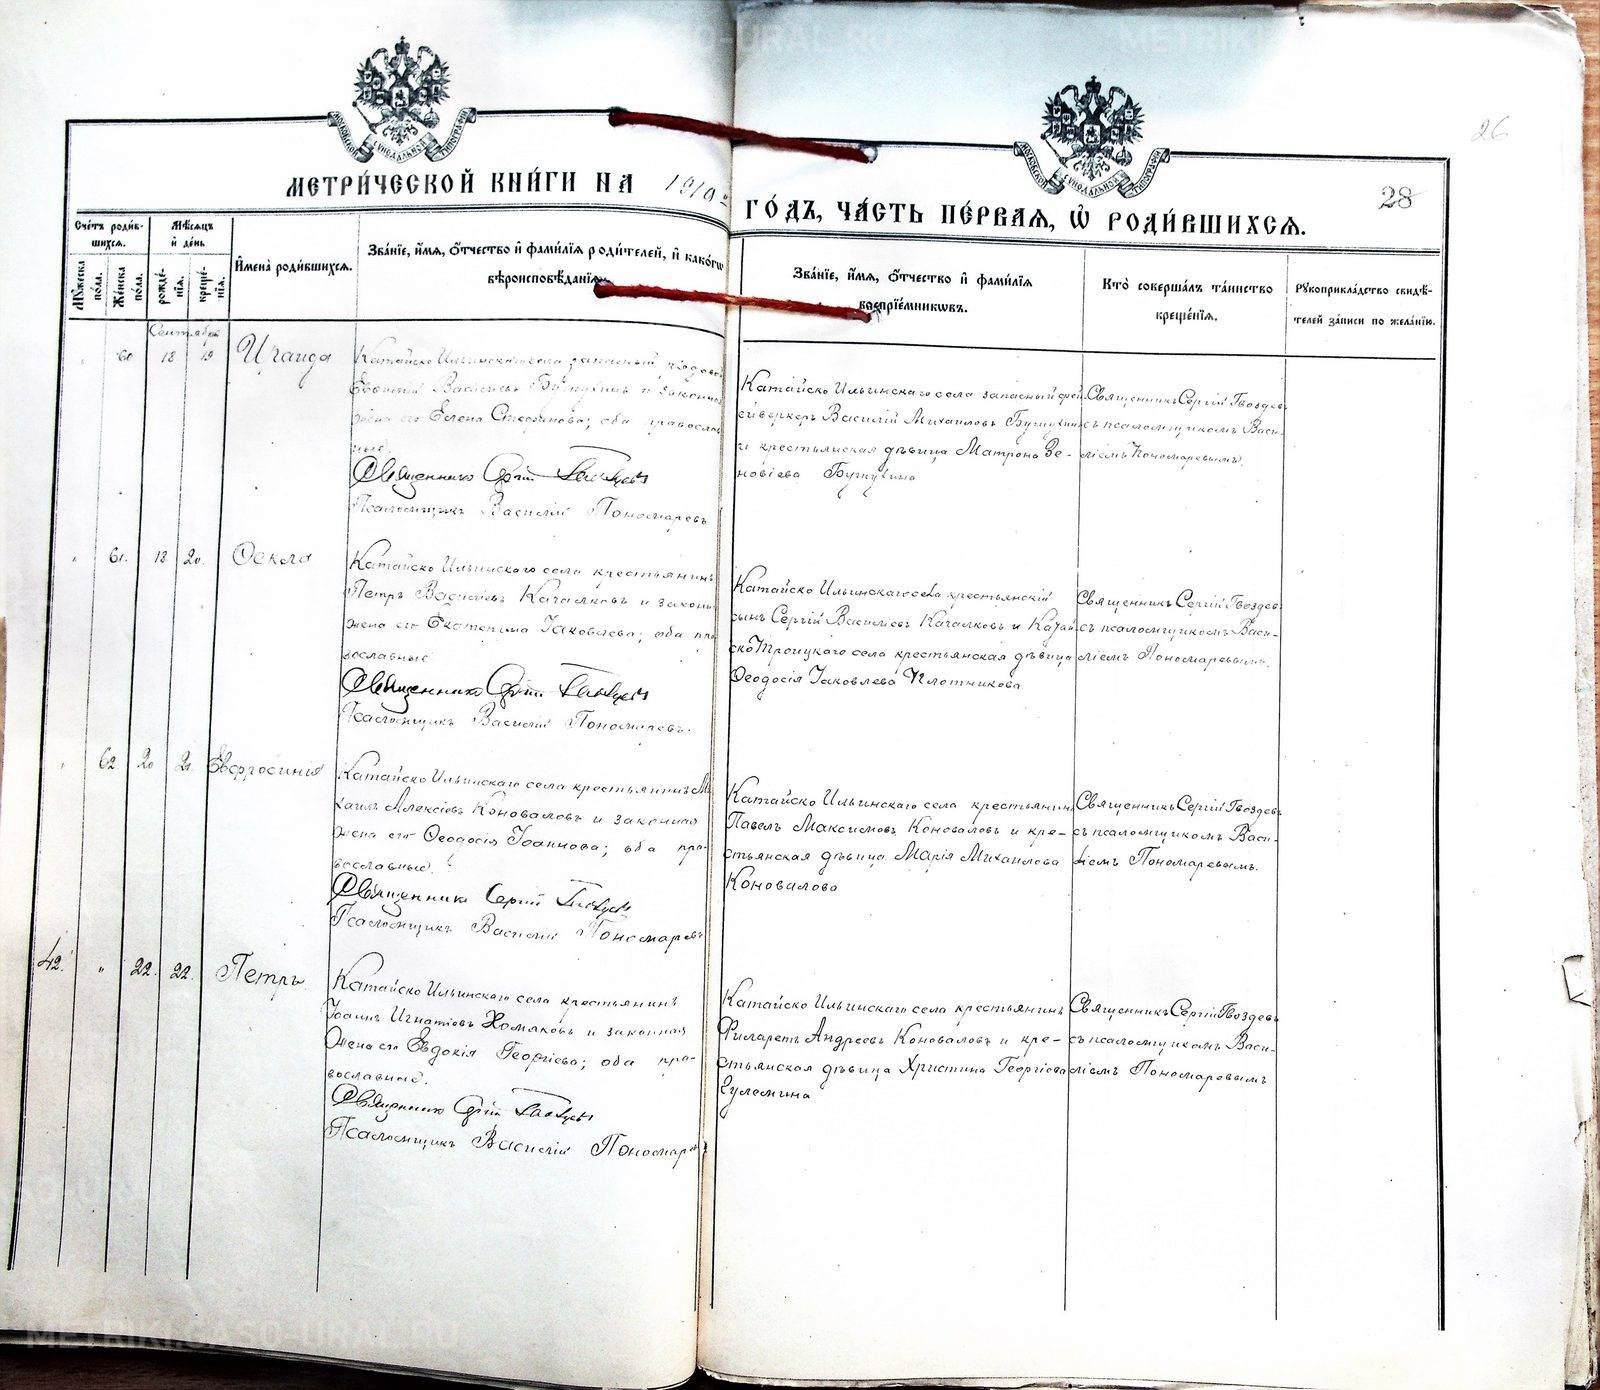 METRIKI
26
МОСКОВСКОЙ СѴНОДАЛЬНОЙ ТИПОГРАФІИ
МОСКОВСКОЙ СѴНОДАЛЬНОЙ ТИПОГРАФІИ
28
МЕТРИ́ЧЕСКОЙ КНИ́ГИ НА 1910 ГО́ДЪ, ЧА́СТЬ ПЕ́РВАЯ, Ѡ҆ РОДИ́ВШИХСЯ.
Сче́тъ роди́в-
шихся.
Мѣ́сяцъ
и҆ де́нь
Му́жеска по́ла.
Же́нска по́ла.
рожде́-
нія.
креще́-
нія.
И҆мена̀ роди́вшихся.
Зва́ніе, и҆́мя, ѻ҆́тчество и҆ фами́лія роди́телей, и҆ како́гѡ
вѣроисповѣ́данія.
Зва́ніе, и҆́мя, ѻ҆́тчество и҆ фами́лія
воспріе́мниковъ.
Кто̀ соверша́лъ та́инство
креще́нія.
Рукоприкла́дство свидѣ́-
телей за́писи по жела́нію.
Сентябрь
" 60 18 19 Ираида
Катайско Ильинскаго села запасный рядовой
Василіевъ Бунтухинъ и законная
жена его Елена Стефанова; оба православ-
ные.
Священникъ Сергій Гвоздевъ
Псаломщикъ Василій Пономаревъ
Катайско Ильинскаго села запасный фей-
ейверкеръ Василій Михаиловъ
и крестьянская дѣвица Матрона Зе-
новіева
Священникъ Сергій Гвоздевъ
съ псаломщикомъ Васи-
ліемъ Пономаревымъ.
" 61. 18 20. Ѳекла
Катайско Ильинскаго села крестьянинъ
Петръ Василіевъ Качалковъ и законн.
жена его Екатерина Іаковлева; оба пра-
вославные
Священникъ Сергій Гвоздевъ
Псаломщикъ Василій Пономаревъ.
Катайско Ильинскаго села крестьянскій
сынъ Сергій Василіевъ Качалковъ и Катай-
ско Троицкаго села крестьянская дѣвица
Ѳеодосія Іаковлева Плотникова
Священникъ Сергій Гвоздевъ
съ псаломщикомъ Васи-
ліемъ Пономаревымъ.
" 62 20 21. Евфросинія
Катайско Ильинскаго села крестьянинъ Ми-
хаилъ Алексіевъ Коноваловъ и законная
жена его Ѳеодосія Іоаннова; оба пра-
вославные.
Священникъ Сергій Гвоздевъ
Псаломщикъ Василій Пономаревъ
Катайско Ильинскаго села крестьянинъ
Павелъ Максимовъ Коноваловъ и кре-
стьянская дѣвица Марія Михаилова
Коновалова
Священникъ Сергій Гвоздевъ
съ псаломщикомъ Васи-
ліемъ Пономаревымъ.
42. " 22. 22. Петръ
Катайско Ильинскаго села крестьянинъ
Іоаннъ Игнатіевъ Хомяковъ и законная
жена его Евдокія Георгіева; оба пра-
вославные.
Священникъ Сергій Гвоздевъ
Псаломщикъ Василій Пономаревъ
Катайско Ильинскаго села крестьянинъ
Филаретъ Андреевъ Коноваловъ и кре-
стьянская дѣвица Христина Георгіева
Гулемина
Священникъ Сергій Гвоздевъ
съ псаломщикомъ Васи-
ліемъ Пономаревымъ
METRIKI.GASO-URAL.RU